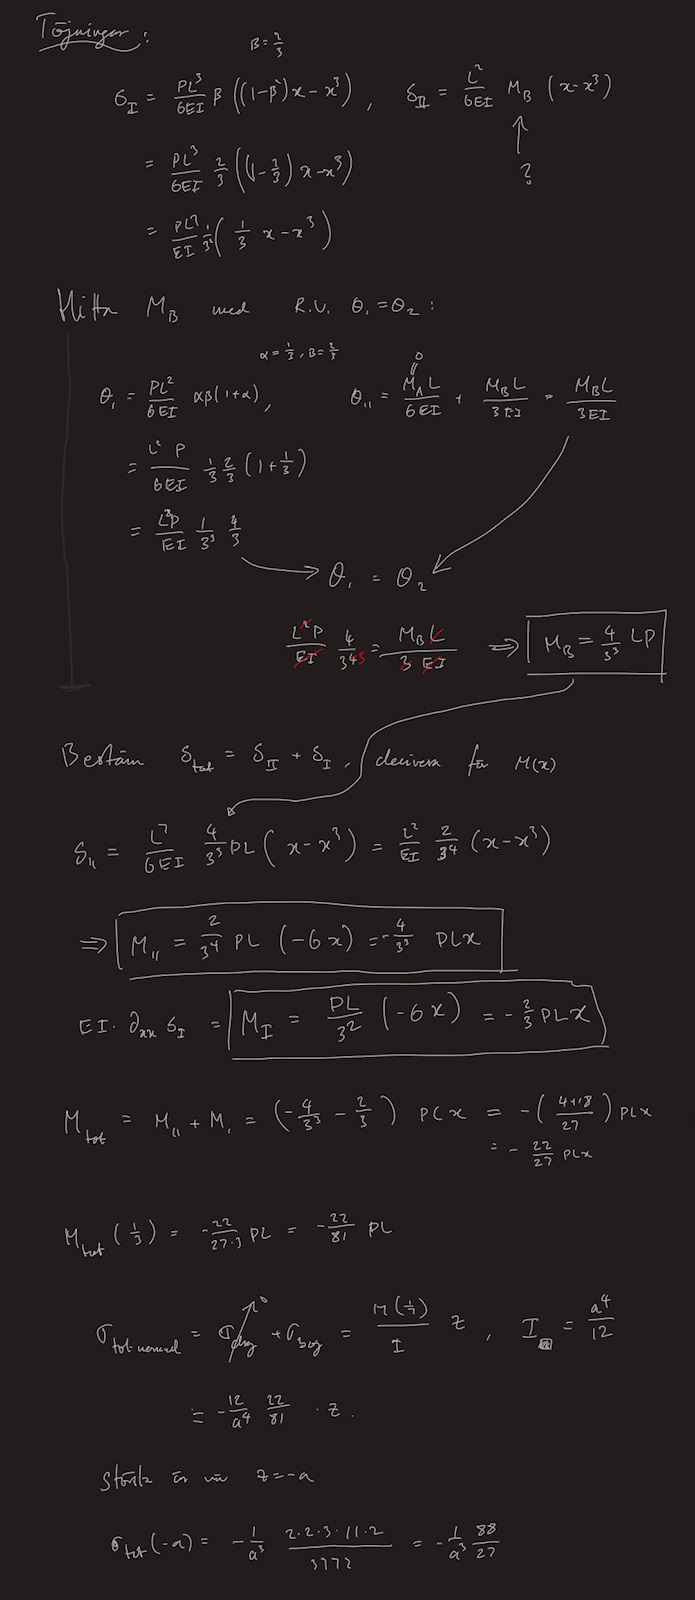 Töjningar:
β = 2/3
δ_I = PL³/6EI β((1-β²)x - x³), δ_II = L²/6EI M_B (x-x³)
↑
?
= PL³/6EI 2/3((1-2/3)x-x³)
= PL³/EI 1/3²(1/3 x-x³)
Hitta M_B med R.V. θ₁=θ₂:
α=1/3, β=2/3
θ₁ = PL²/6EI αβ(1+α), θ₁₁ = M_A L/6EI + M_B L/3EI = M_B L/3EI
0
= L² P/6EI 1/3 2/3 (1+1/3)
= L²P/EI 1/3³ 4/3
→ θ₁ = θ₂
L²P/EI 4/3⁴ ³ = M_B L/3 EI ⇒ M_B = 4/3³ LP
Bestäm δ_tot = δ_II + δ_I, derivera för M(x)
δ₁₁ = L²/6EI 4/3³ PL(x-x³) = L²/EI 2/3⁴ (x-x³)
⇒ M₁₁ = 2/3⁴ PL (-6x) = -4/3³ PLx
EI·∂xx δ_I = M_I = PL/3² (-6x) = -2/3 PLx
M_tot = M₁₁ + M₁ = (-4/3³ - 2/3) PLx = -(4+18/27) PLx
= -22/27 PLx
M_tot(1/3) = -22/27·3 PL = -22/81 PL
σ_tot normal = σ_drag + σ_böj = M(1/3)/I z, I = a⁴/12
0
= -12/a⁴ 22/81 · z.
Störst är när z=-a
σ_tot(-a) = -1/a³ 2·2·3·11·2/3333 = -1/a³ 88/27